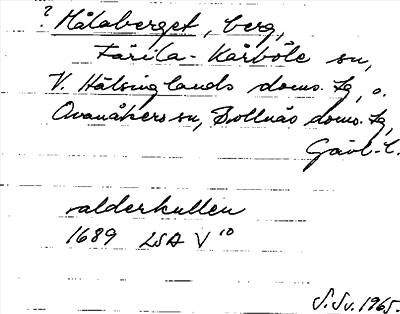 ? Målaberget, berg,
Färila-Kårböle sn,
V. Hälsinglands doms. sg, o.
Ovanåkers sn, Bollnäs doms. sg,
Gävl. l.
valderkullen
1689 LSA V 10
S. Sv. 1965.